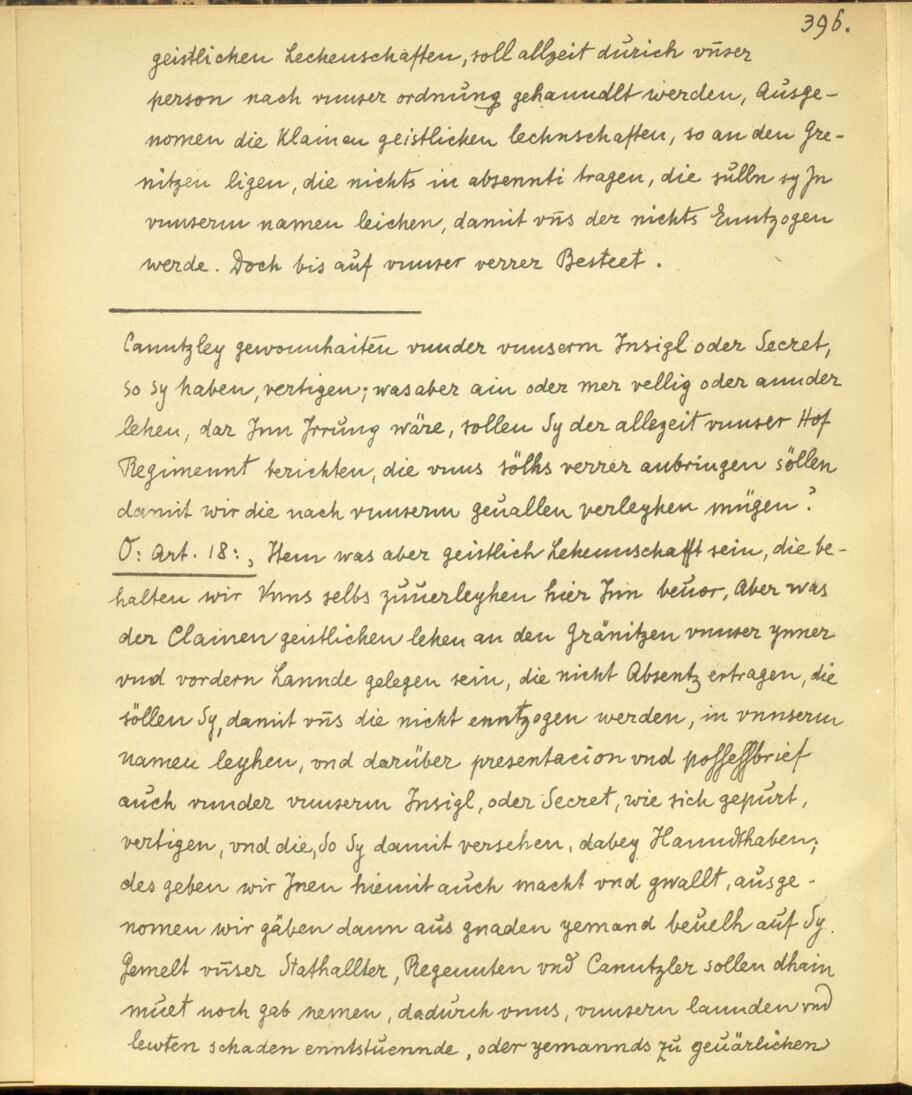 396.
geistlichen Lechenschaften, soll allzeit dŭrich vn̄ser
person nach vnnser ordnŭng gehanndlt werden, Aŭsge-
nomen die Klainen geistlichen lechnschaften, so an den Gre-
nitzen ligen, die nichts in absennti tragen, die sŭlln sy Jn
vnnserm namen leichen, damit vn̄s der nichts Enntzogen
werde. Doch bis aŭf vnnser verrer Besteet.
Canntzley gewonnhaiten vnnder vnnserm Insigl oder Secret,
so sy haben, vertigen; was aber ain oder mer vellig oder annder
lehen, dar Jnn Jrrŭng wäre, sollen Sy der allezeit vnnser Hof
Regimennt berichten, die vnns sölhs verrer anbringen söllen
damit wir die nach vnnserm geuallen verleyhen mŭgen?
O: Art. 18:, Item was aber geistlich Lehennschafft sein, die be-
halten wir Vnns selbs zŭuerleyhen hier Jnn beŭor, Aber was
der Clainen geistlichen lehen an den Gränitzen vnnser ynner
vnd vordern Lannde gelegen sein, die nicht Absentz ertragen, die
söllen Sy, damit vn̄s die nicht enntzogen werden, in vnnserm
namen leyhen, vnd darüber presentacion vnd possessbrief
auch vnnder vnnserm Insigl, oder Secret, wie sich gepŭrt,
vertigen, vnd die, So Sy damit versehen, dabey Hanndthaben;
des geben wir Jnen hiemit aŭch macht vnd gwallt, aŭsge-
nomen wir gäben dann aŭs gnaden yemand beŭelh aŭf Sy.
Gemelt vn̄ser Stathallter, Regennten vnd Canntzler sollen dhain
mŭet noch gab nemen, dadŭrch vnns, vnnsern lannden vnd
lewten schaden enntstŭennde, oder yemannds zŭ geŭärlichen